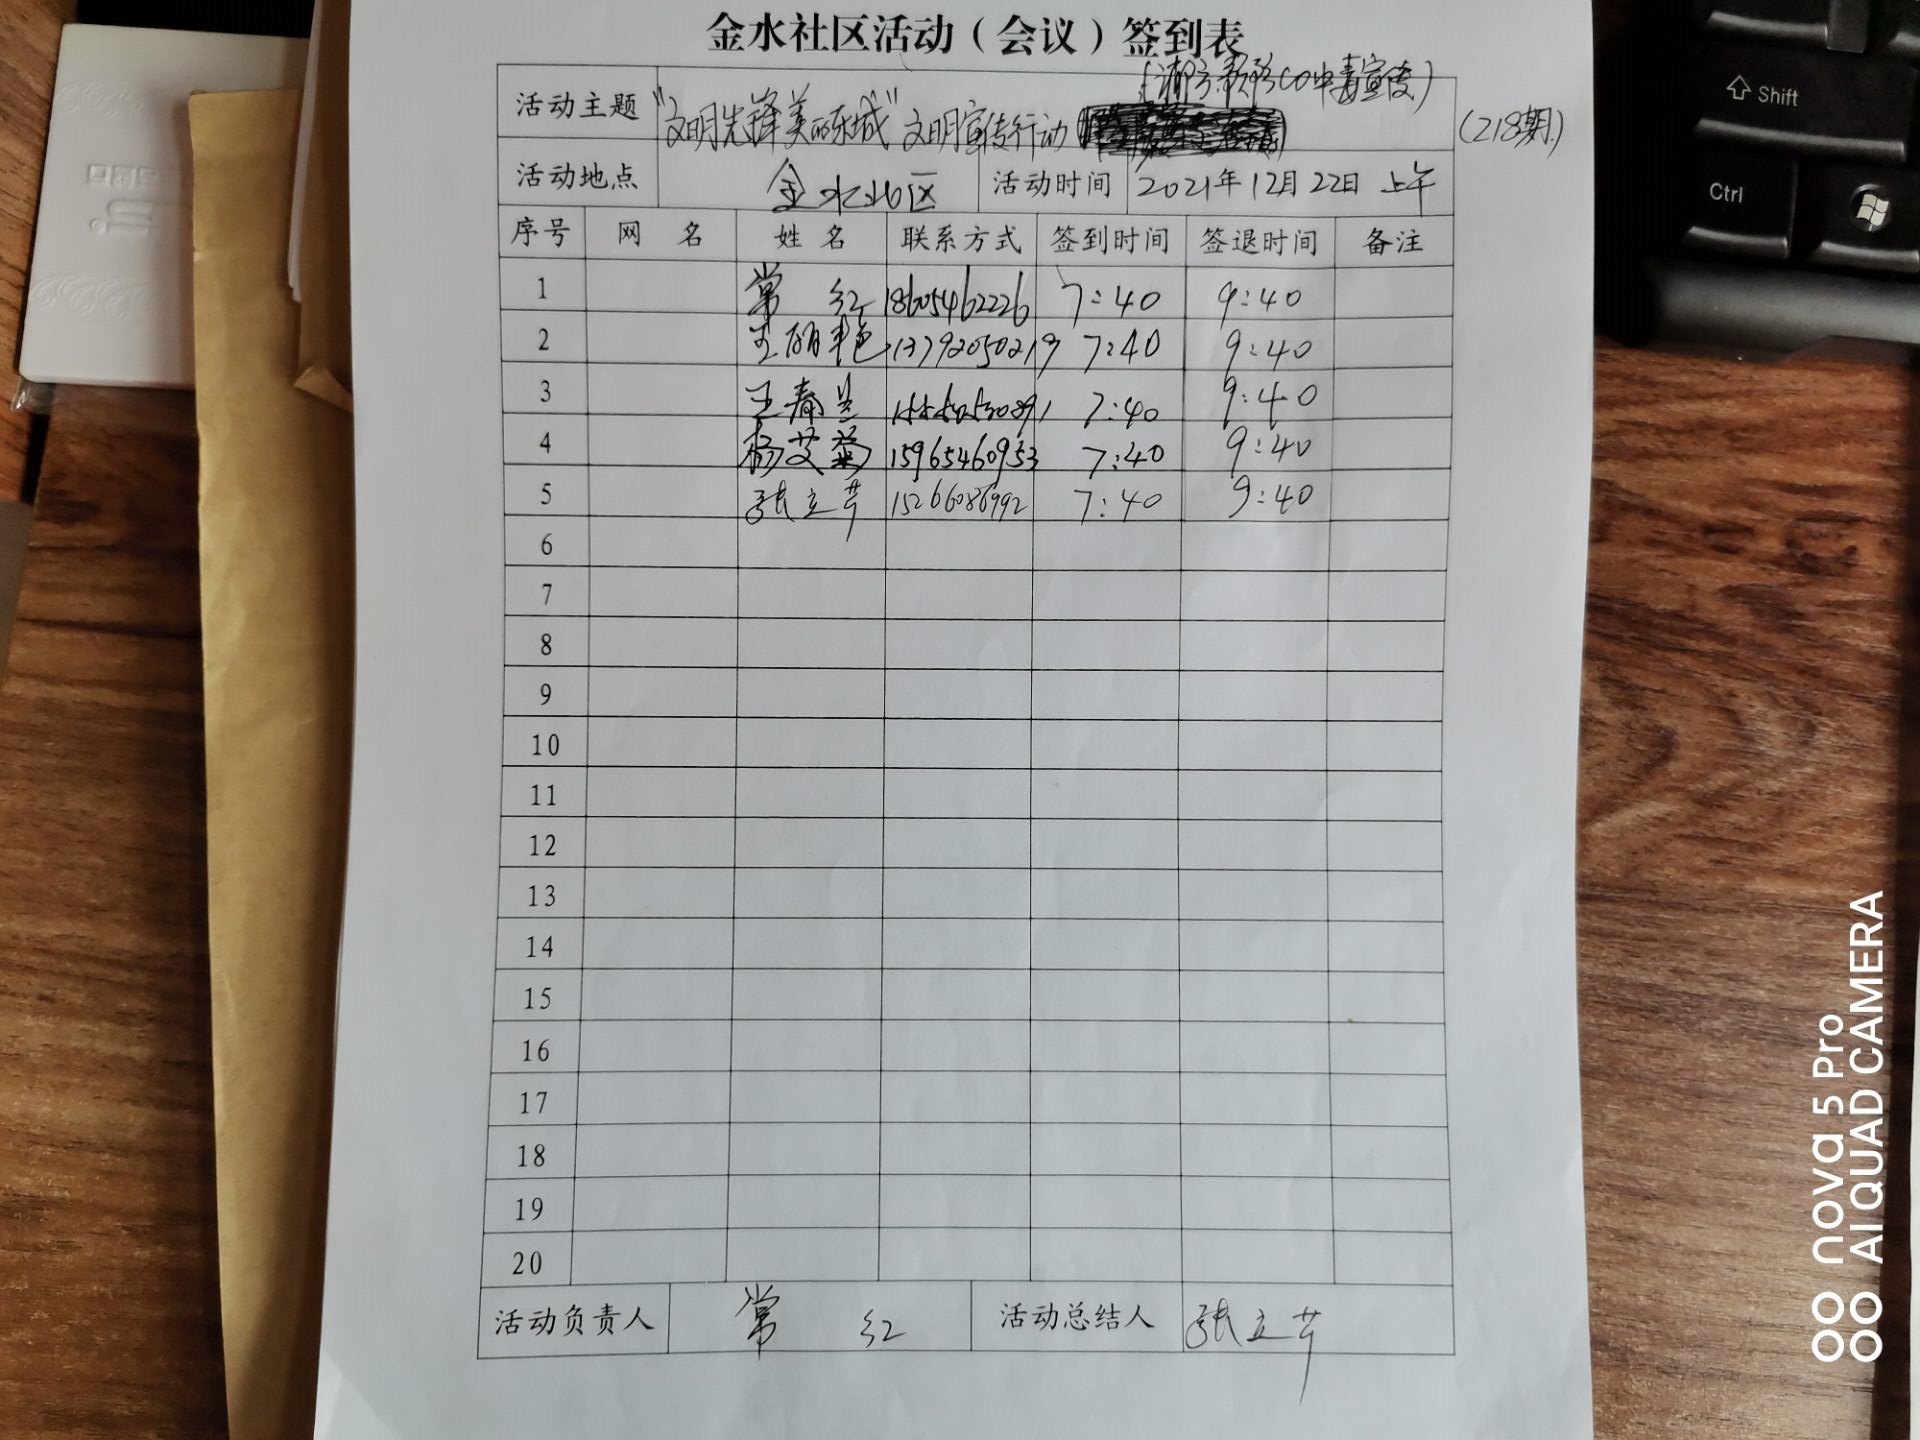 金水社区活动（会议）签到表
预防CO中毒宣传）
活动主题 "文明先锋 美丽东城" 文明宣传行动
（218期）
活动地点 金水社区 活动时间 2021年12月22日 上午
序号 网 名 姓 名 联系方式 签到时间 签退时间 备注
1 常 红 18605462226 7:40 9:40
2 13792050219 7:40 9:40
3 王春兰 7:40 9:40
4 杨艾菊 15965460953 7:40 9:40
5 张立芹 15266086992 7:40 9:40
6
7
8
9
10
11
12
13
14
15
16
17
18
19
20
活动负责人 常 红 活动总结人 张立芹
Shift
Ctrl
nova 5 Pro
AI QUAD CAMERA